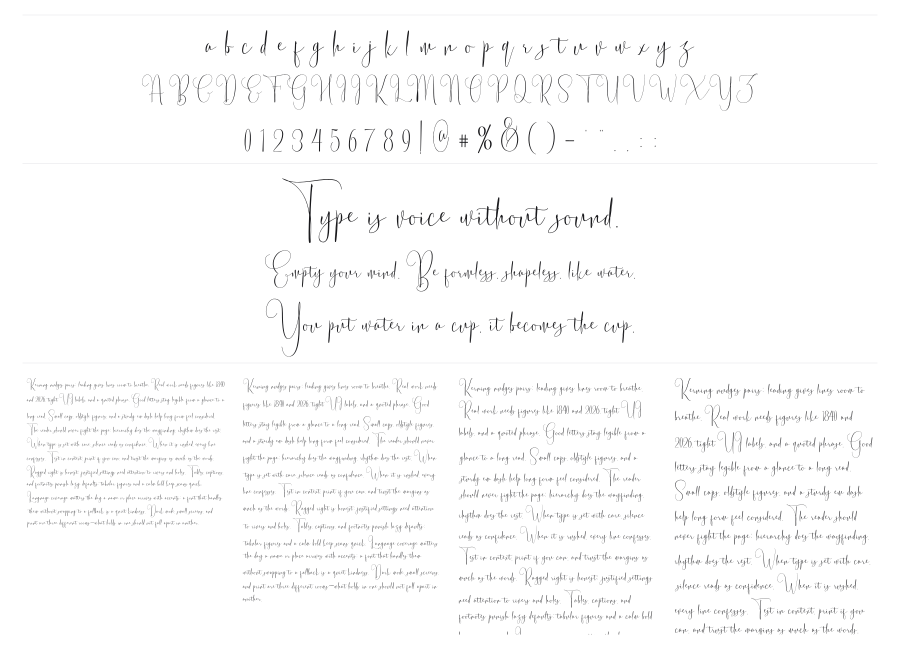 a b c d e f g h i j k l m n o p q r s t u v w x y z
A B C D E F G H I J K L M N O P Q R S T U V W X Y Z
0 1 2 3 4 5 6 7 8 9 | @ # % & ( ) - ' " . , : ;
Type is voice without sound.
Empty your mind. Be formless, shapeless, like water.
You put water in a cup, it becomes the cup.
Kerning nudges pairs; leading gives lines room to breathe. Real work needs figures like 1840
and 2026, tight UI labels, and a quoted phrase. Good letters stay legible from a glance to a
long read. Small caps, oldstyle figures, and a sturdy em dash help long form feel considered.
The reader should never fight the page; hierarchy does the wayfinding, rhythm does the rest.
When type is set with care, silence reads as confidence. When it is rushed, every line
confesses. Test in context, print if you can, and trust the margins as much as the words.
Ragged right is honest; justified settings need attention to rivers and holes. Tables, captions,
and footnotes punish lazy defaults; tabular figures and a calm bold keep scans quick.
Language coverage matters the day a name or place arrives with accents; a font that handles
them without swapping to a fallback is a quiet kindness. Dark mode, small screens, and
print are three different rooms—what holds in one should not fall apart in another.
Kerning nudges pairs; leading gives lines room to breathe. Real work needs
figures like 1840 and 2026, tight UI labels, and a quoted phrase. Good
letters stay legible from a glance to a long read. Small caps, oldstyle figures,
and a sturdy em dash help long form feel considered. The reader should never
fight the page; hierarchy does the wayfinding, rhythm does the rest. When
type is set with care, silence reads as confidence. When it is rushed, every
line confesses. Test in context, print if you can, and trust the margins as
much as the words. Ragged right is honest; justified settings need attention
to rivers and holes. Tables, captions, and footnotes punish lazy defaults;
tabular figures and a calm bold keep scans quick. Language coverage matters
the day a name or place arrives with accents; a font that handles them
without swapping to a fallback is a quiet kindness. Dark mode, small screens,
and print are three different rooms—what holds in one should not fall apart in
another.
Kerning nudges pairs; leading gives lines room to breathe.
Real work needs figures like 1840 and 2026, tight UI
labels, and a quoted phrase. Good letters stay legible from a
glance to a long read. Small caps, oldstyle figures, and a
sturdy em dash help long form feel considered. The reader
should never fight the page; hierarchy does the wayfinding,
rhythm does the rest. When type is set with care, silence
reads as confidence. When it is rushed, every line confesses.
Test in context, print if you can, and trust the margins as
much as the words. Ragged right is honest; justified settings
need attention to rivers and holes. Tables, captions, and
footnotes punish lazy defaults; tabular figures and a calm bold
Kerning nudges pairs; leading gives lines room to
breathe. Real work needs figures like 1840 and
2026, tight UI labels, and a quoted phrase. Good
letters stay legible from a glance to a long read.
Small caps, oldstyle figures, and a sturdy em dash
help long form feel considered. The reader should
never fight the page; hierarchy does the wayfinding,
rhythm does the rest. When type is set with care,
silence reads as confidence. When it is rushed,
every line confesses. Test in context, print if you
can, and trust the margins as much as the words.